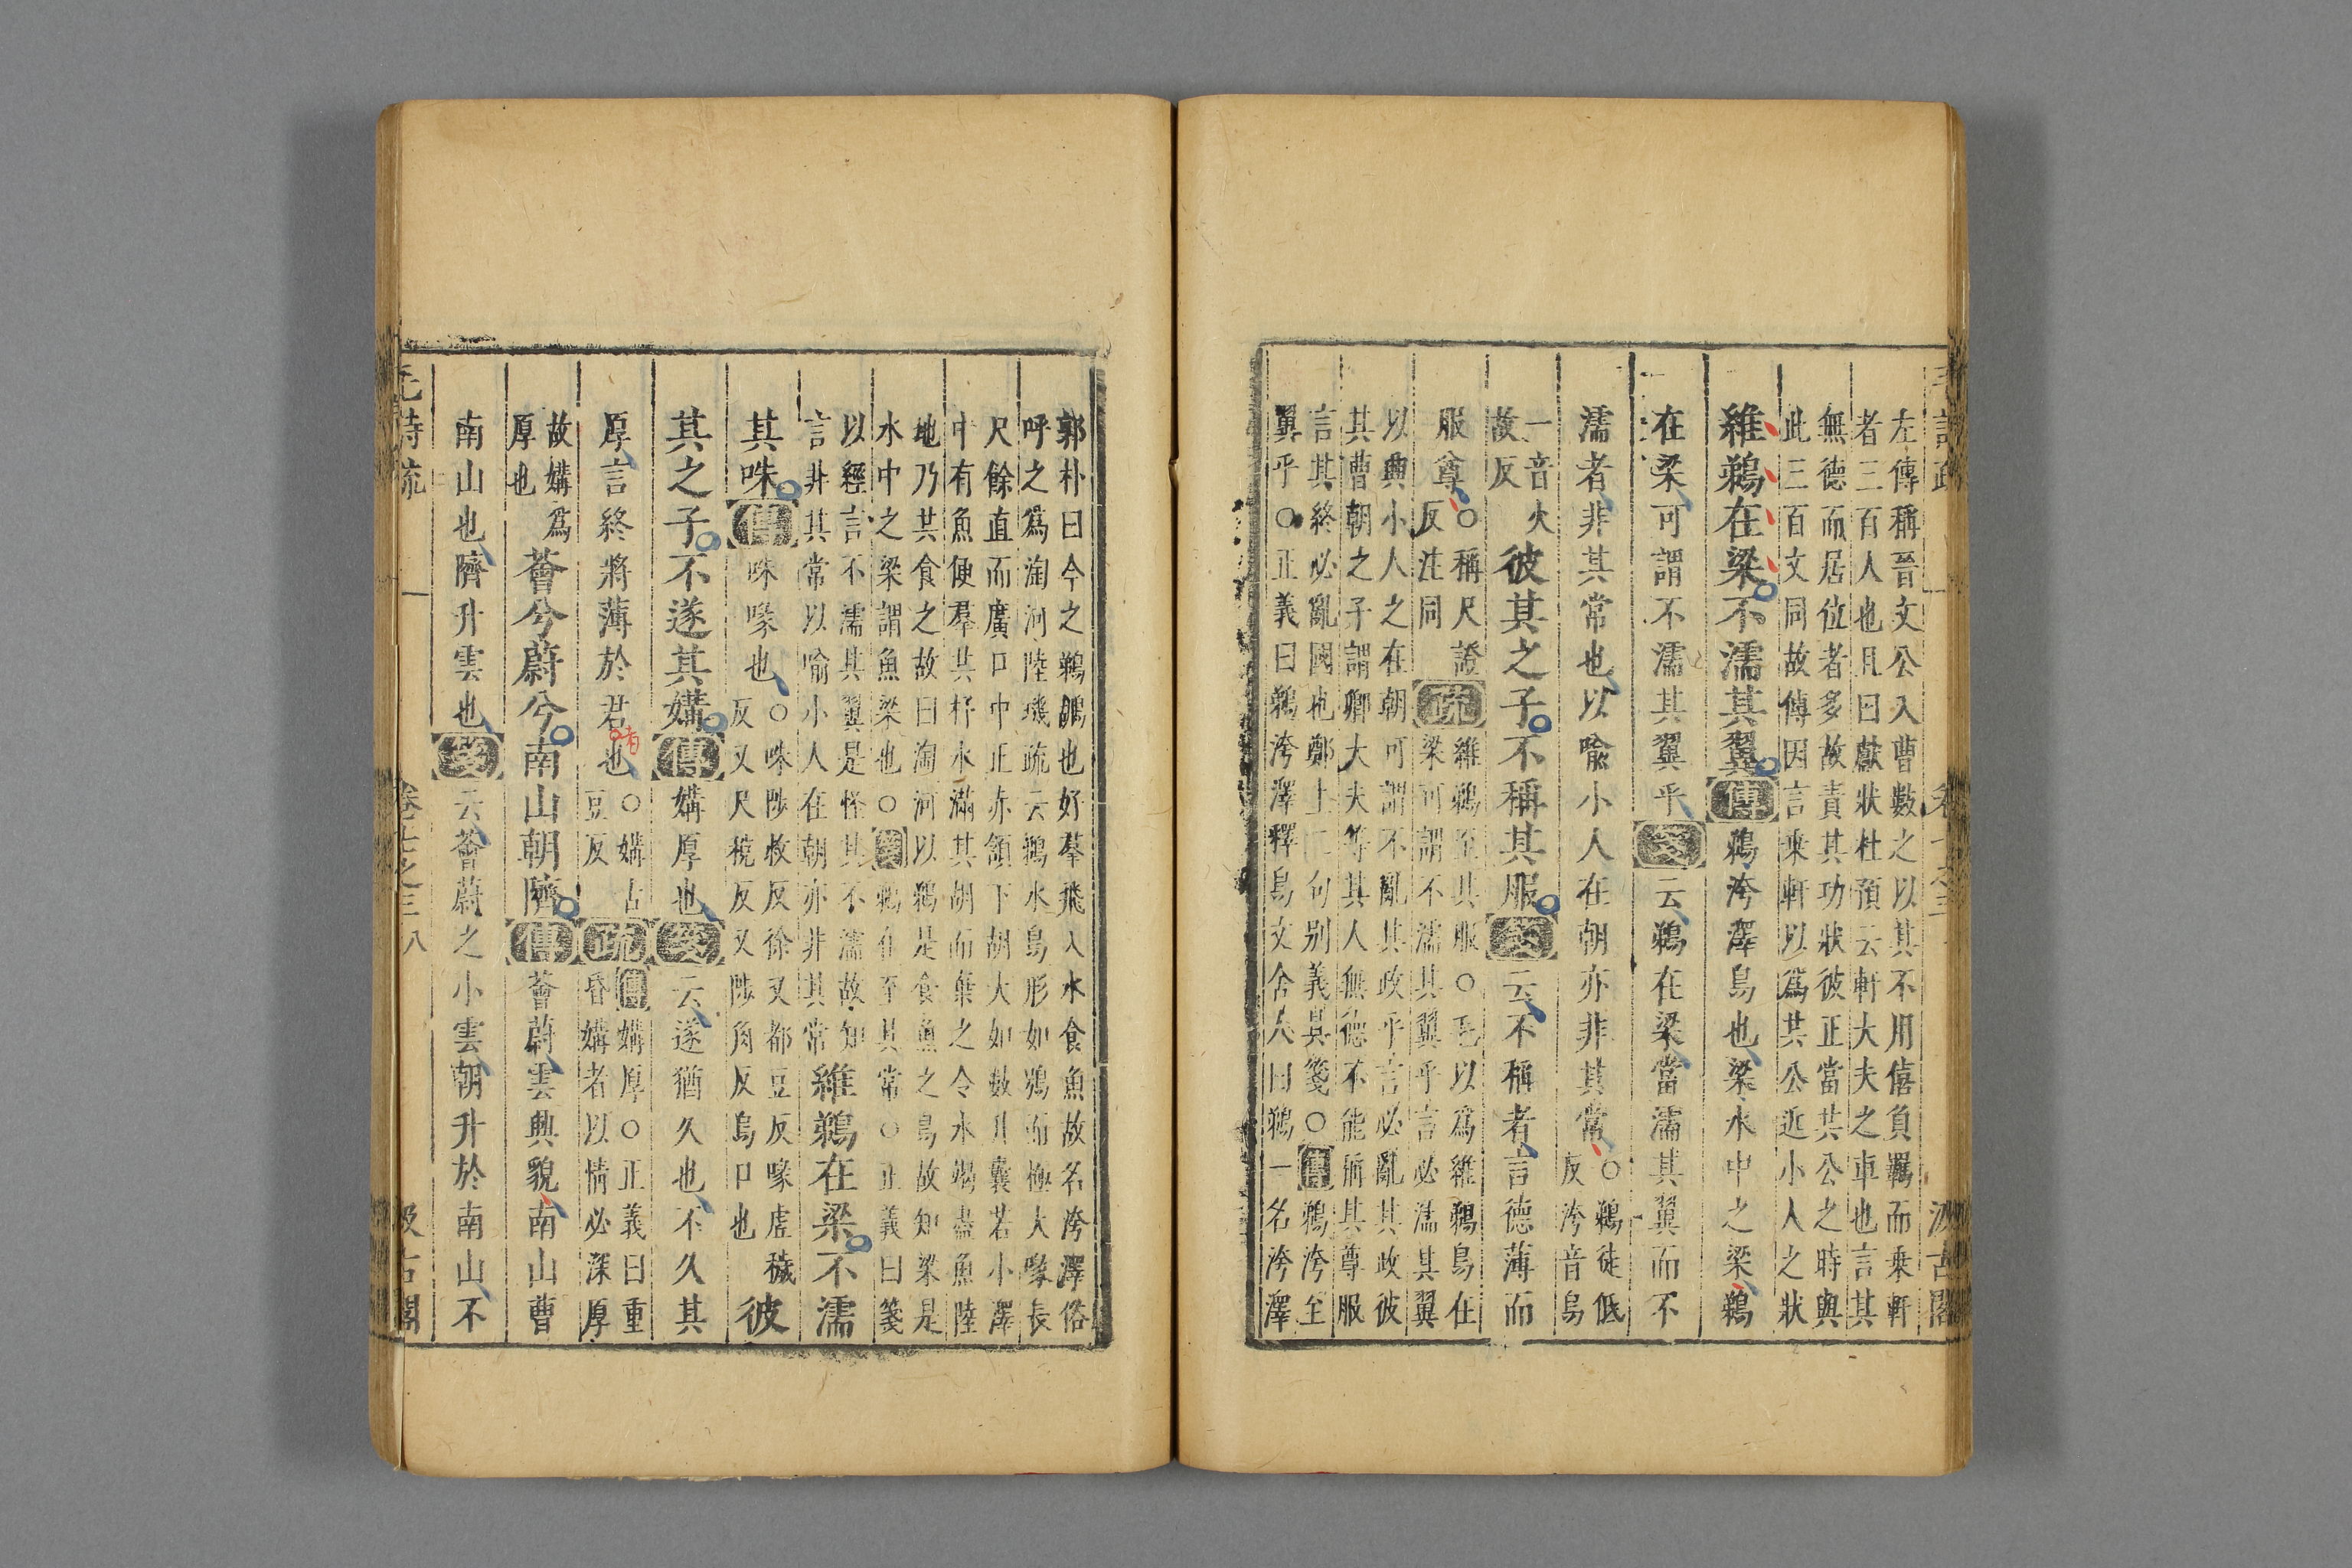 左傳稱晉文公入曹數之以其不用僖負羈而乗軒
者三百人也且曰獻狀杜預云軒大夫之車也言其
無德而居位者多故責其功狀彼正當共公之時與
此三百文同故傳因言乗軒以爲共公近小人之狀
維鵜在梁不濡其翼傳鵜洿澤鳥也梁水中之梁鵜
在梁可謂不濡其翼乎箋云鵜在梁當濡其翼而不
濡者非其常也以喻小人在朝亦非其常○鵜徒低
反洿音烏
一音火
故反
彼其之子不稱其服箋云不稱者言德薄而
服尊○稱尺證
反注同
疏維鵜至其服○毛以爲維鵜鳥在
梁可謂不濡其翼乎言必濡其翼
以興小人之在朝可謂不亂其政乎言必亂其政彼
其曹朝之子謂卿大夫等其人無德不能稱其尊服
言其終必亂國也鄭上二句别義具箋○傳鵜洿至
翼乎○正義曰鵜洿澤釋鳥文舍人曰鵜一名洿澤
郭朴曰今之鵜鶘也好羣飛入水食魚故名洿澤俗
呼之爲淘河陸璣疏云鵜水鳥形如鴞而極大喙長
尺餘直而廣口中正赤頷下胡大如數升囊若小澤
中有魚便羣共杼水滿其胡而棄之令水竭盡魚陸
地乃共食之故曰淘河以鵜是食魚之鳥故知梁是
水中之梁謂魚梁也○箋鵜在至其常○正義曰箋
以經言不濡其翼是怪其不濡故知
言非其常以喻小人在朝亦非其常
維鵜在梁不濡
其咮傳咮喙也○咮陟救反徐又都豆反喙虛穢
反又尺稅反又陟角反鳥口也
彼
其之子不遂其媾傳媾厚也箋云遂猶久也不久其
厚言終將薄於君也○媾古
豆反
有
疏傳媾厚○正義曰重
昏媾者以情必深厚
故媾爲
厚也
薈兮蔚兮南山朝隮傳薈蔚雲興貌南山曹
南山也隮升雲也箋云薈蔚之小雲朝升於南山不
毛詩疏 卷七之三 八 汲古閣